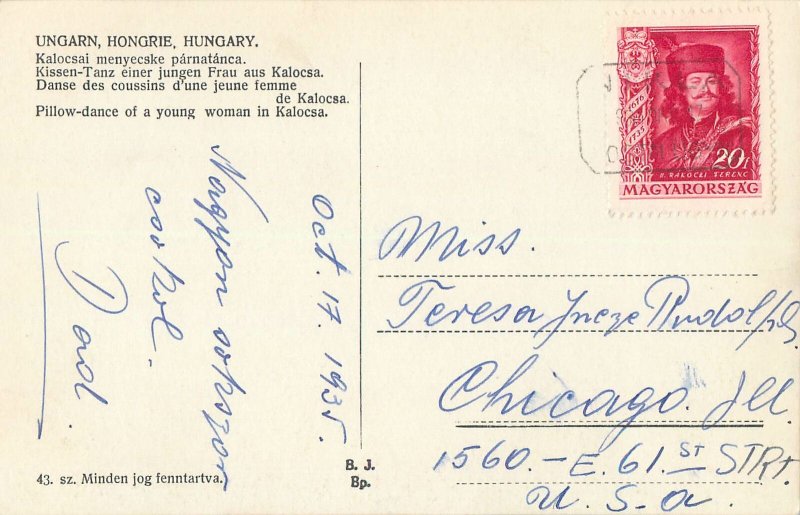 UNGARN, HONGRIE, HUNGARY.
Kalocsai menyecske párnatánca.
Kissen-Tanz einer jungen Frau aus Kalocsa.
Danse des coussins d'une jeune femme
de Kalocsa.
Pillow-dance of a young woman in Kalocsa.
Oct. 17. 1935.
Nagyon sokszor
csokol.
Dad.
43. sz. Minden jog fenntartva.
B. J.
Bp.
1676
1735
20f
II. RÁKÓCZI FERENC
MAGYARORSZÁG
Miss.
Teresa Incze
Chicago. Ill.
1560.- E. 61. ST STRT.
U. S. A.